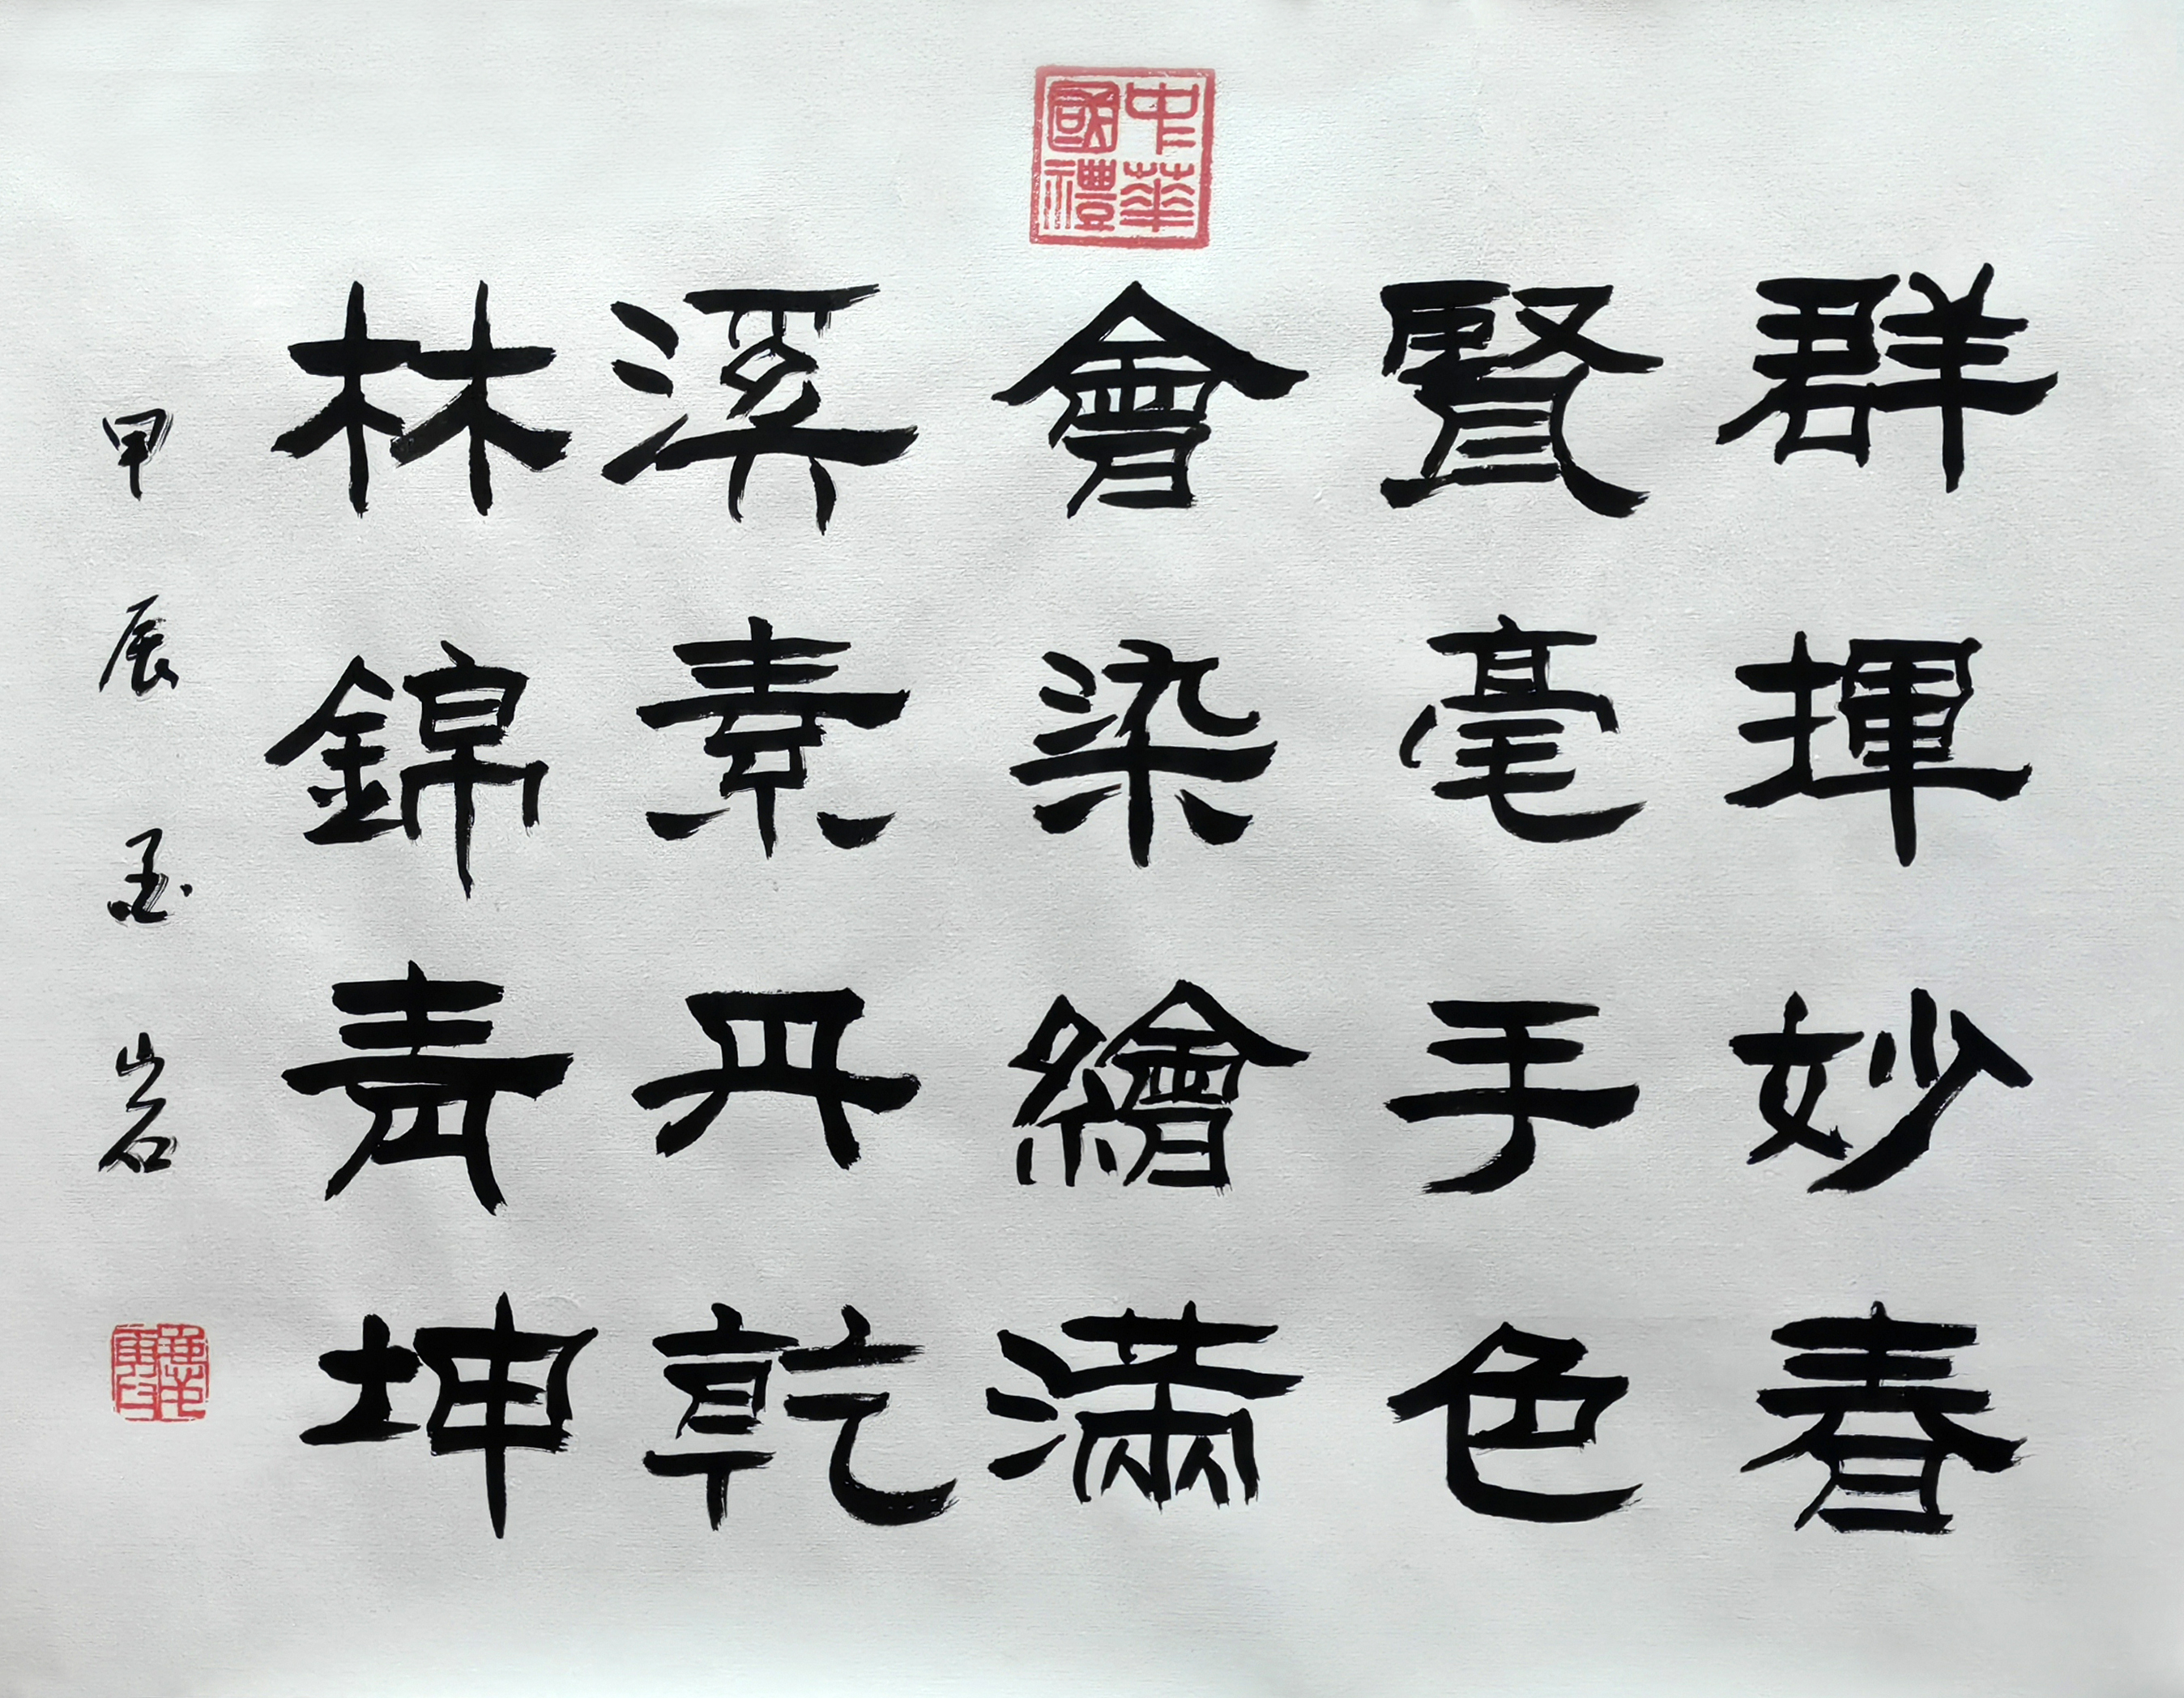 中華國禮
群賢會溪林
揮毫染素錦
妙手繪丹青
春色滿乾坤
甲辰玉岩